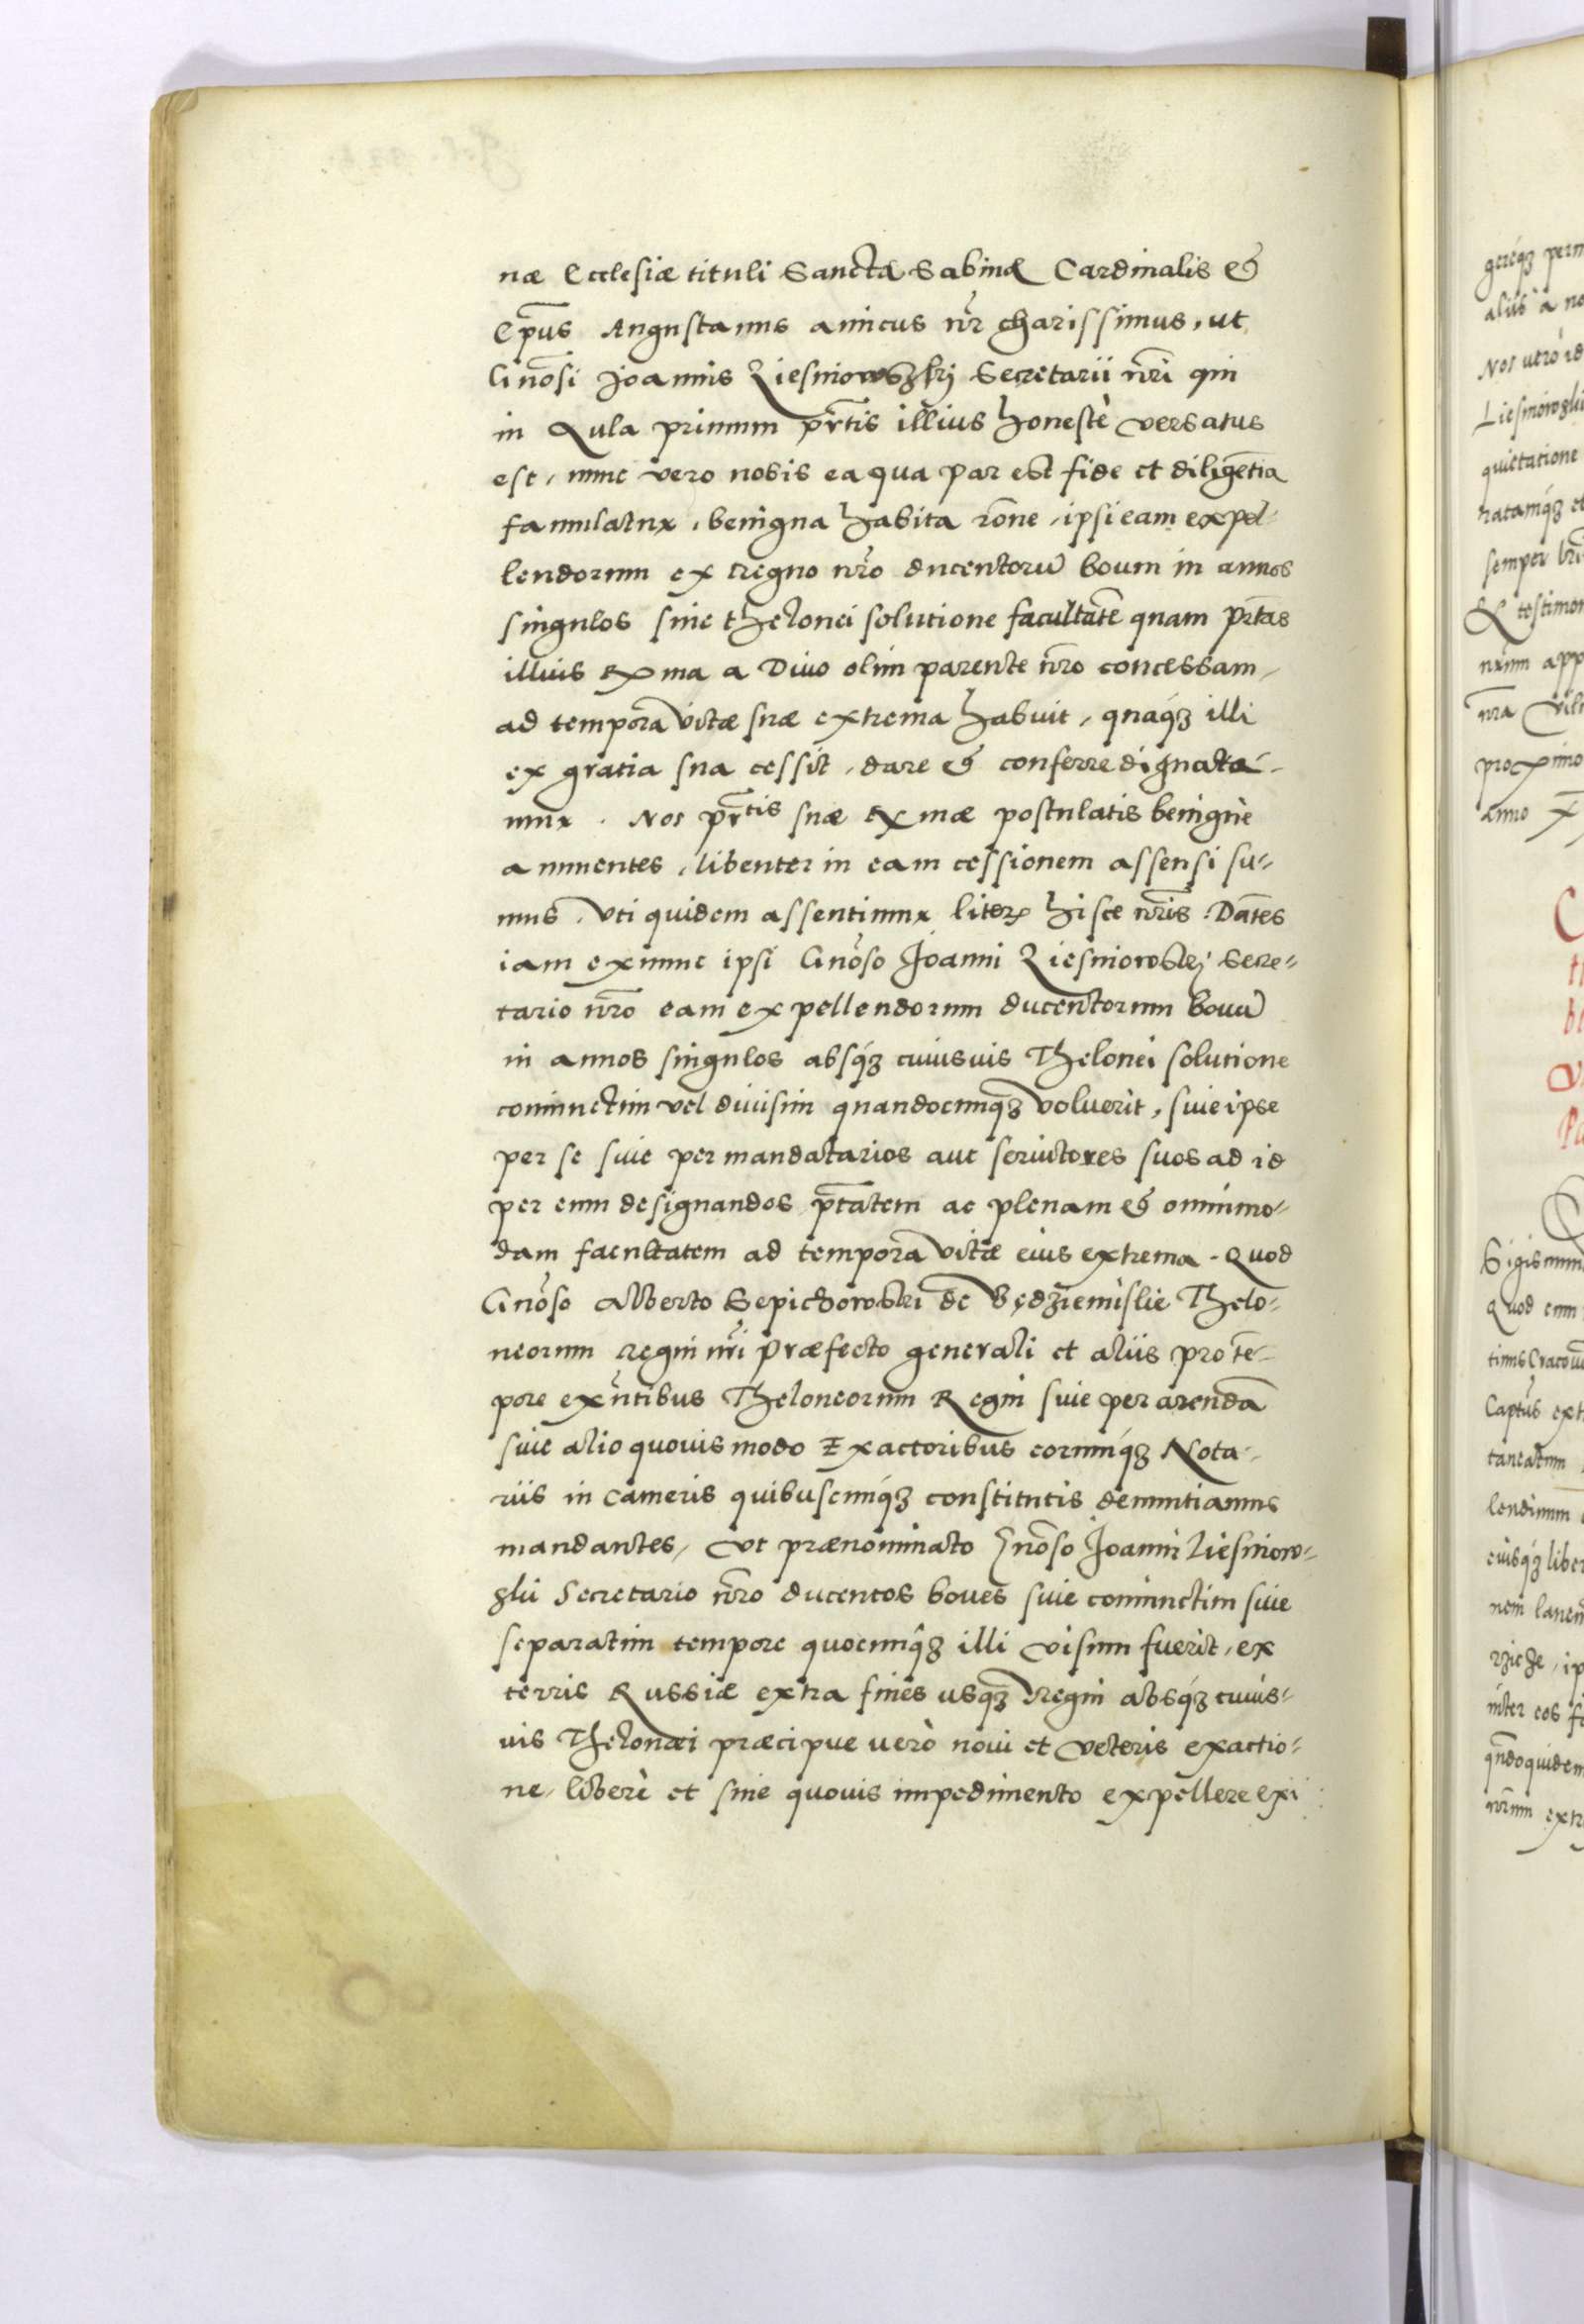 næ Ecclesiæ tituli Sanctæ Sabinæ Cardinalis et
Ep̃us Augustanus amicus nr̃ charissimus, ut
Gnõsi Joannis Liesniowszkij Secretarii nr̃i qui
in Aula primum p̃rtis illius honestè versatus
est, nunc vero nobis ea qua par est fide et diligẽtia
famulatur, benigna habita rõne, ipsi eam expel-
lendorum ex regno nr̃o ducentorũ boum in annos
singulos sine thelonei solutione facultatẽ quam P̃rtas
illius Exma a Divo olim parente nr̃o concessam,
ad tempora vitæ suæ extrema habuit, quaq́ꝫ illi
ex gratia sua cessit, dare et conferre dignare-
mur. Nos p̃rtis suæ Exmæ postulatis benignè
annuentes, libenter in eam cessionem assensi su-
mus, uti quidem assentimur literꝭ hisce nr̃is. Dãtes
iam ex nunc ipsi Gnõso Joanni Liesniowskij Secre-
tario nr̃o eam expellendorum ducentorum bouũ
in annos singulos absq́ꝫ cuiusuis Thelonei solutione
coniunctim vel diuisim quandocunq́ꝫ voluerit, siue ipse
per se siue per mandatarios aut seruitores suos ad id
per eum designandos p̃tatem ac plenam et omnimo-
dam facultatem ad tempora vitæ eius extrema. Quod
Gnõso Alberto Sepichowski de Będziemislie Thelo-
neorum regni nr̃i Præfecto generali et aliis pro tẽ-
pore exñtibus Theloneorum Regni siue per arendã
siue alio quouis modo Exactoribus eorumq́ꝫ Nota-
riis in cameris quibuscunq́ꝫ constitutis denuntiamus
mandantes, ut prænominato Gnõso Joanni Liesniow-
szki Secretario nr̃o ducentos boues siue coniunctim siue
separatim tempore quocunq́ꝫ illi visum fuerit, ex
terris Russiæ extra fines usqꝫ Regni absq́ꝫ cuius-
uis Thelonæi præcipue verò noui et veteris exactio-
ne, liberè et sine quouis impedimento expellere exi